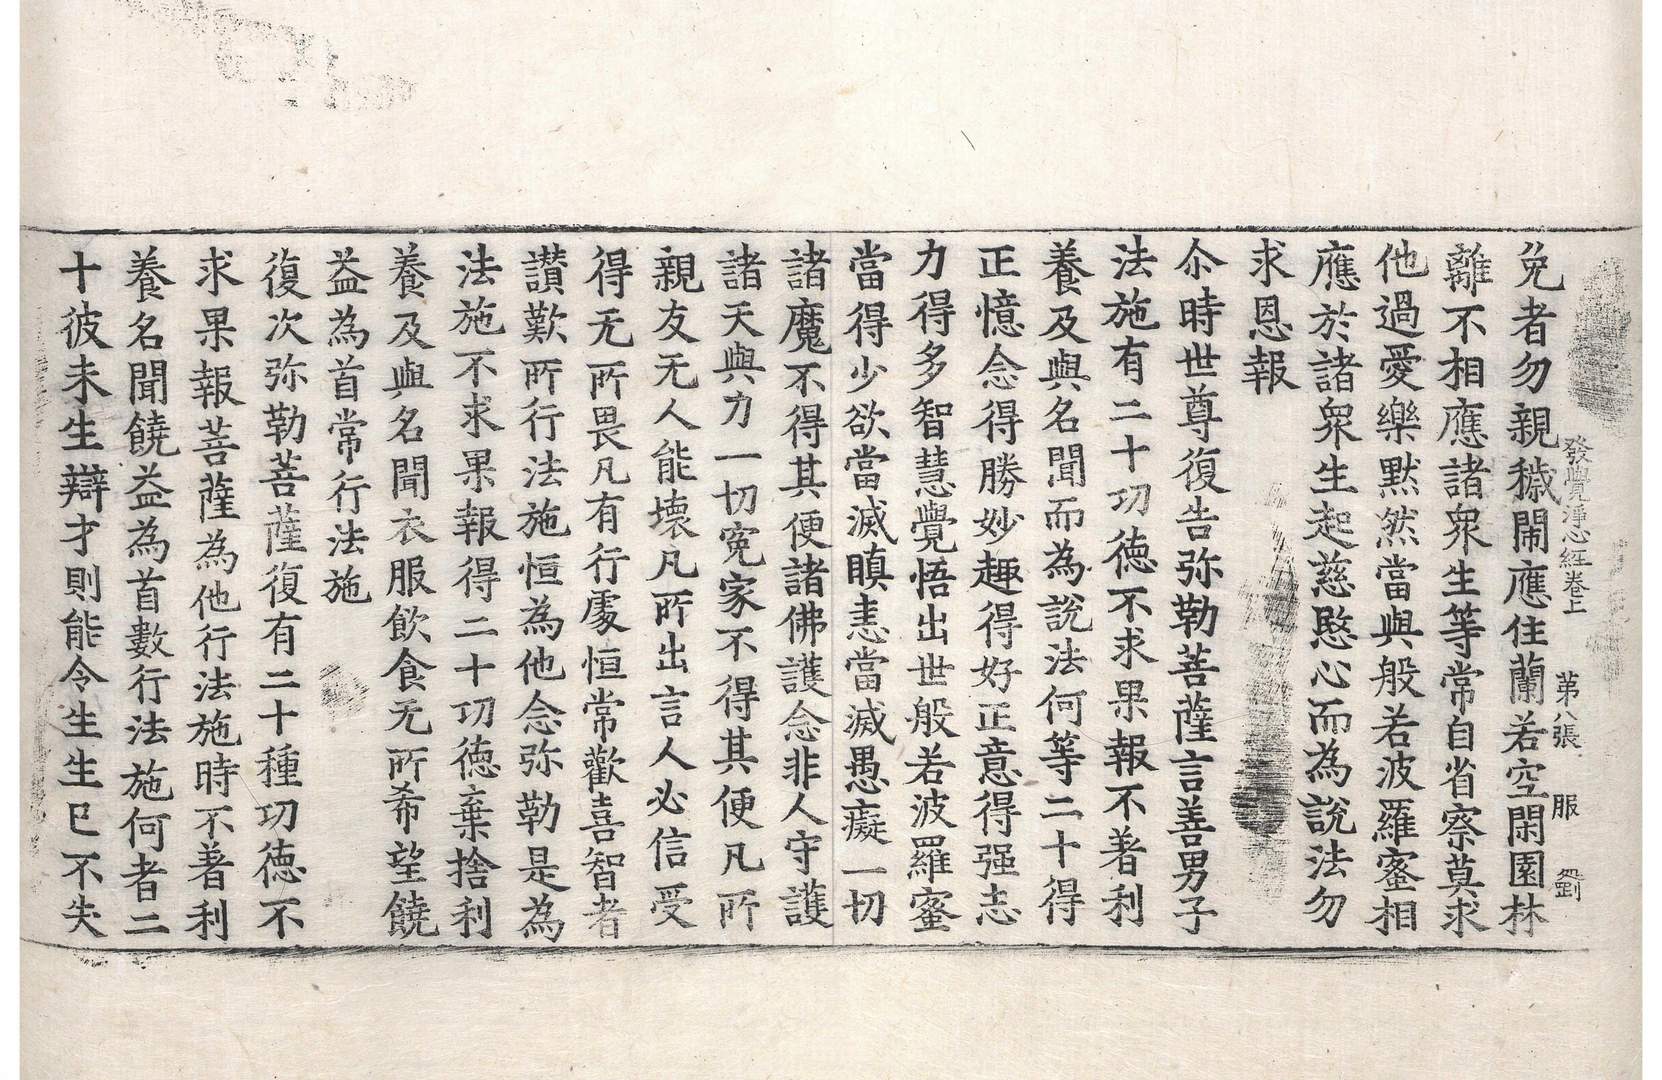 發覺淨心經卷上 第八張 服 劉
免者勿親穢閙應住蘭若空閑園林
離不相應諸衆生等常自省察莫求
他過愛樂默然當與般若波羅蜜相
應於諸衆生起慈愍心而為說法勿
求恩報
尒時世尊復告弥勒菩薩言善男子
法施有二十功德不求果報不著利
養及與名聞而為說法何等二十得
正憶念得勝妙趣得好正意得强志
力得多智慧覺悟出世般若波羅蜜
當得少欲當滅瞋恚當滅愚癡一切
諸魔不得其便諸佛護念非人守護
諸天與力一切寃家不得其便凡所
親友无人能壞凡所出言人必信受
得无所畏凡有行處恒常歡喜智者
讃歎所行法施恒為他念弥勒是為
法施不求果報得二十功德棄捨利
養及與名聞衣服飲食无所希望饒
益為首常行法施
復次弥勒菩薩復有二十種功德不
求果報菩薩為他行法施時不著利
養名聞饒益為首數行法施何者二
十彼未生辯才則能令生生已不失